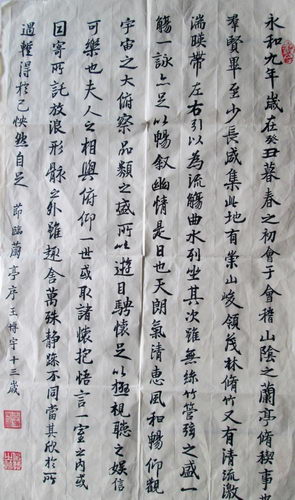 永和九年歲在癸丑暮春之初會于會稽山陰之蘭亭脩稧事也
羣賢畢至少長咸集此地有崇山峻領茂林脩竹又有清流激
湍暎帶左右引以為流觴曲水列坐其次雖無絲竹管弦之盛一
觴一詠亦足以暢叙幽情是日也天朗氣清惠風和暢仰觀
宇宙之大俯察品類之盛所以遊目騁懷足以極視聽之娛信
可樂也夫人之相與俯仰一世或取諸懷抱悟言一室之內或
因寄所託放浪形骸之外雖趣舍萬殊靜躁不同當其欣於所
遇得於己怏然自足 節臨蘭亭序 王博宇十三歲